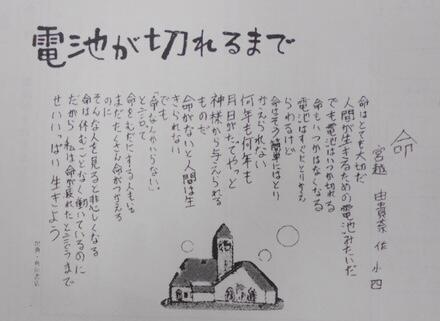 電池が切れるまで
命
宮越 由貴奈 作 小四
命はとても大切だ
人間が生きるための電池みたいだ
でも電池はいつか切れる
命もいつかはなくなる
電池はすぐにとりかえ
られるけど
命はそう簡単にはとり
かえられない
何年も何年も
月日がたってやっと
神様から与えられる
ものだ
命がないと人間は生
きられない
でも
「命なんかいらない。」
と言って
命をむだにする人もいる
まだたくさん命がつかえる
のに
そんな人を見ると悲しくなる
命は休むことなく働いているのに
だから 私は命が疲れたと言うまで
せいいっぱい生きよう